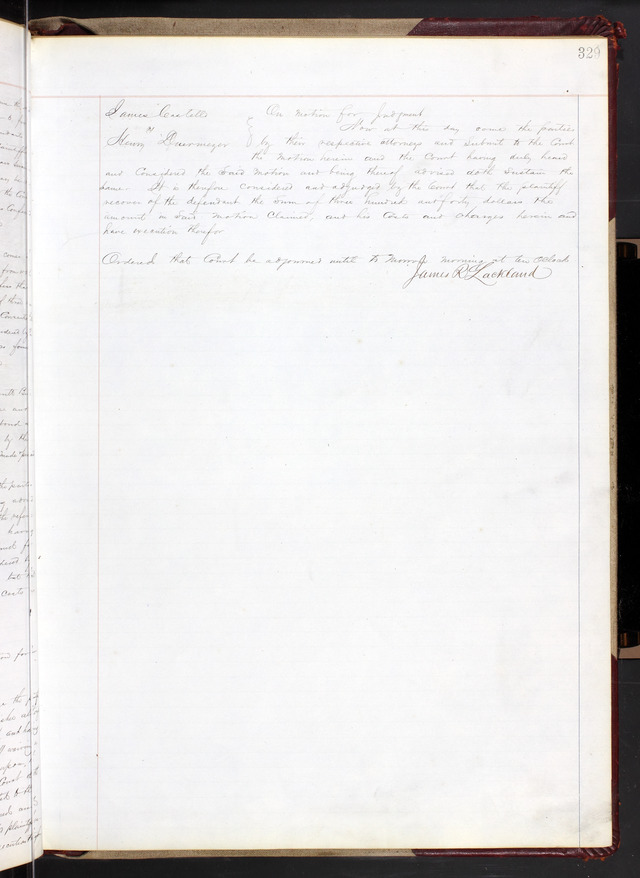 329
James Castello } On Motion for Judgment
vs Now at this day come the parties
Henry Duermeyer by their respective attorneys and Submit to the Court
the Motion herein and the Court having duly heard
and Considered the Said Motion and being thereof advised doth Sustain the
Same. It is therefore Considered and adjudged by the Court that the plaintiff
recover of the defendant the Sum of three hundred and forty dollars the
amount in Said Motion Claimed, and his Costs and Charges herein and
have execution therefor
Ordered that Court be adjourned until to Morrow morning at ten OClock
James R. Lackland